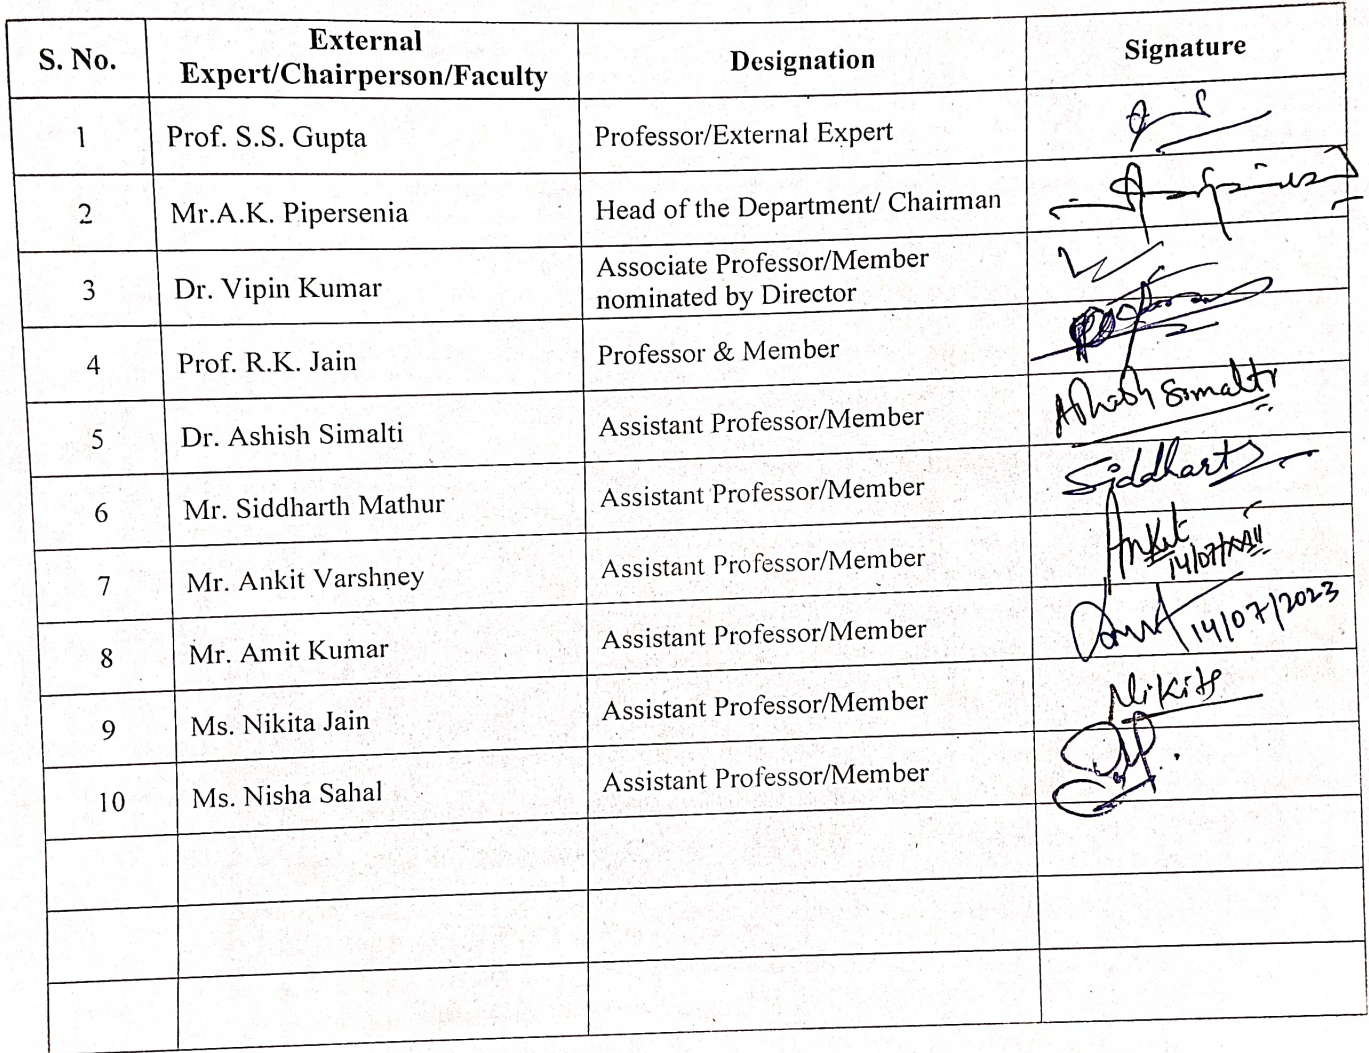 S. No. External Expert/Chairperson/Faculty Designation Signature
1 Prof. S.S. Gupta Professor/External Expert
2 Mr.A.K. Pipersenia Head of the Department/ Chairman
3 Dr. Vipin Kumar Associate Professor/Member nominated by Director
4 Prof. R.K. Jain Professor & Member
5 Dr. Ashish Simalti Assistant Professor/Member Ashish Simalti
6 Mr. Siddharth Mathur Assistant Professor/Member Siddharth
7 Mr. Ankit Varshney Assistant Professor/Member Ankit
8 Mr. Amit Kumar Assistant Professor/Member 14/07/2023
9 Ms. Nikita Jain Assistant Professor/Member Nikita
10 Ms. Nisha Sahal Assistant Professor/Member